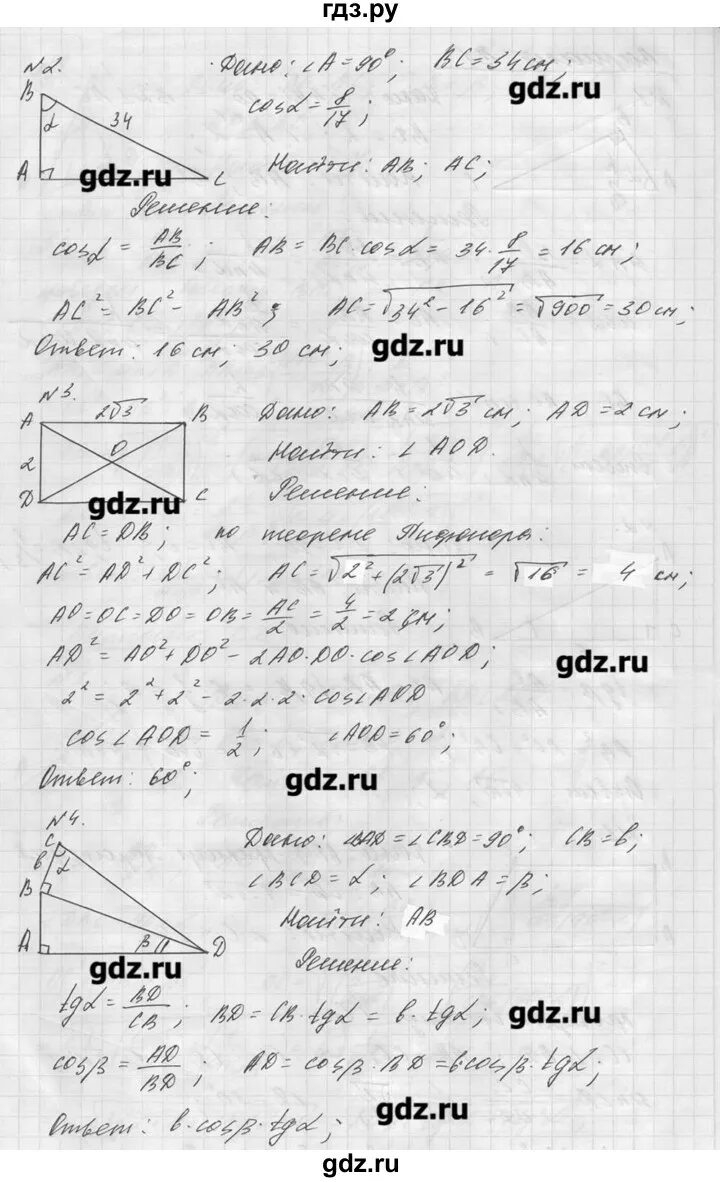 гдз.ру
№2.
Дано: ∠A = 90°; BC = 34 см;
cosα = 8/17;
B
α
34
A
C
gdz.ru
Найти: AB; AC;
gdz.ru
Решение:
cosα = AB/BC; AB = BC·cosα = 34·8/17 = 16 см;
AC² = BC² - AB²; AC = √(34² - 16²) = √900 = 30 см;
Ответ: 16 см; 30 см;
gdz.ru
№3.
A
2√3
B
O
2
D
C
gdz.ru
Дано: AB = 2√3 см; AD = 2 см;
Найти: ∠AOD.
Решение:
AC = DB; по теореме Пифагора:
AC² = AD² + DC²; AC = √(2² + (2√3)²) = √16 = 4 см;
AO = OC = DO = OB = AC/2 = 4/2 = 2 см;
AD² = AO² + DO² - 2AO·DO·cos∠AOD;
gdz.ru
2² = 2² + 2² - 2·2·2·cos∠AOD
cos∠AOD = 1/2; ∠AOD = 60°;
Ответ: 60°;
gdz.ru
№4.
C
в
α
B
A
β
D
gdz.ru
Дано: ∠BAD = ∠CBD = 90°; CB = в;
∠BCD = α; ∠BDA = β;
Найти: AB
Решение:
tgα = BD/CB; BD = CB·tgα = в·tgα;
gdz.ru
cosβ = AD/BD; AD = cosβ·BD = вcosβ·tgα;
Ответ: в·cosβ·tgα;
gdz.ru
gdz.ru